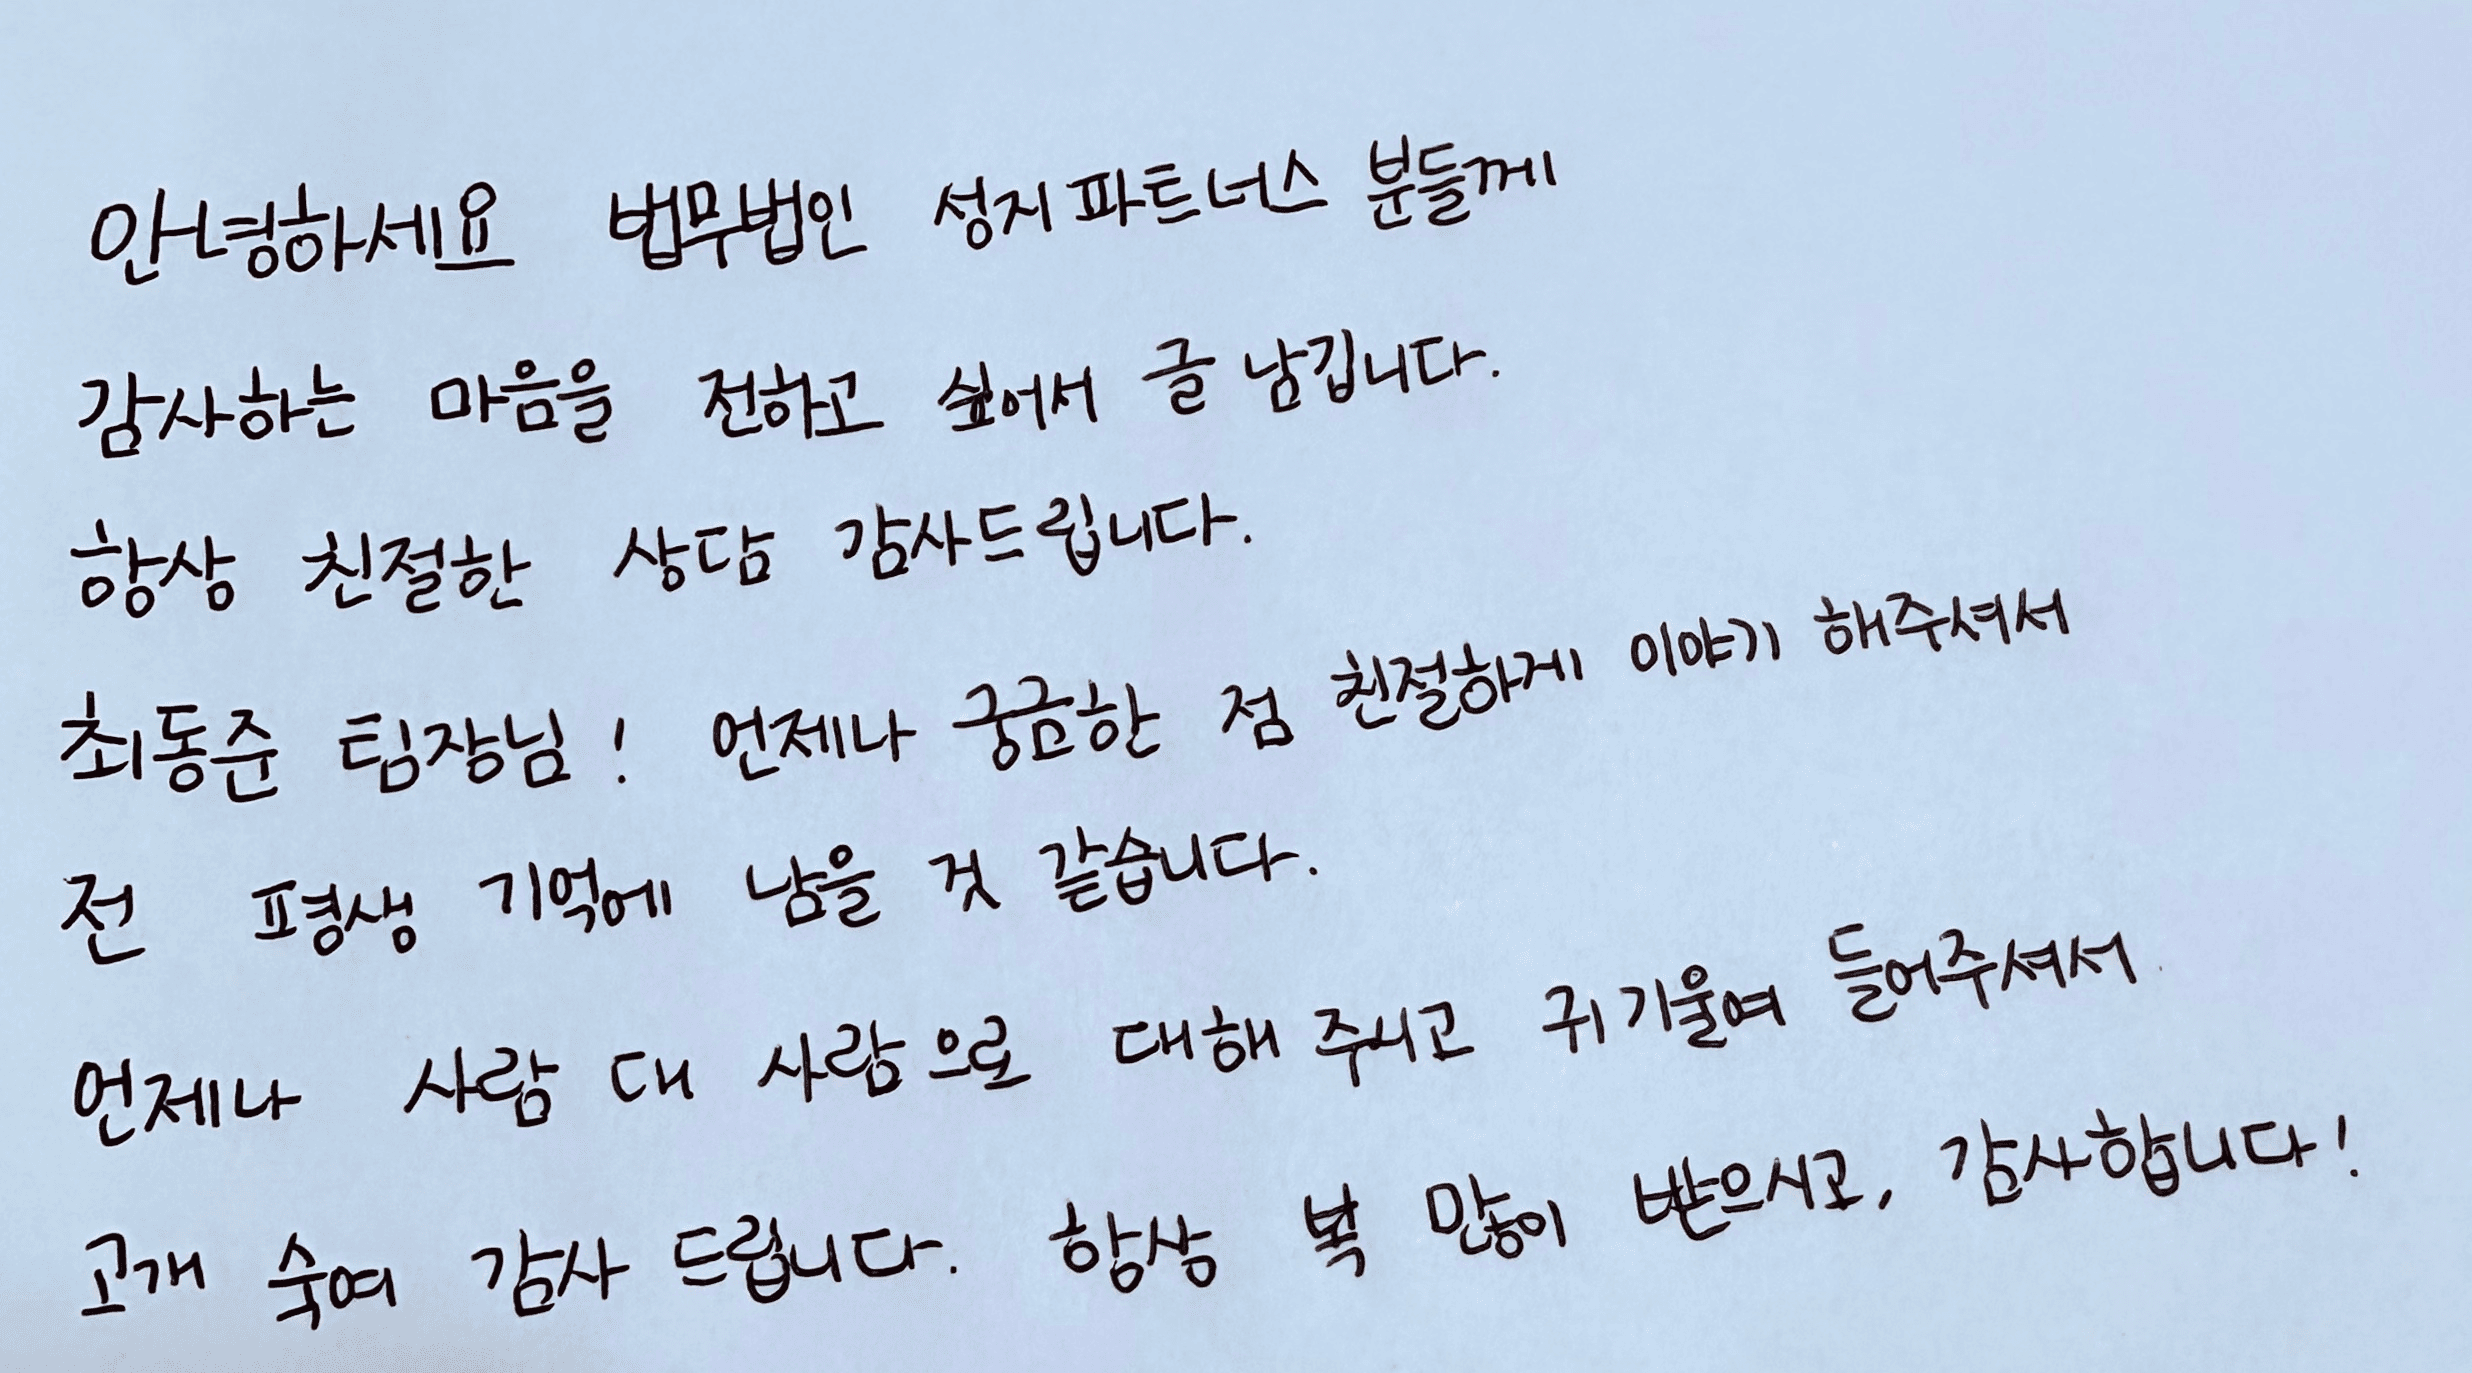 안녕하세요 법무법인 성지파트너스 분들께
감사하는 마음을 전하고 싶어서 글 남깁니다.
항상 친절한 상담 감사드립니다.
최동준 팀장님! 언제나 궁금한 점 친절하게 이야기 해주셔서
전 평생 기억에 남을 것 같습니다.
언제나 사람 대 사람으로 대해 주시고 귀 기울여 들어주셔서
고개 숙여 감사 드립니다. 항상 복 많이 받으시고, 감사합니다!